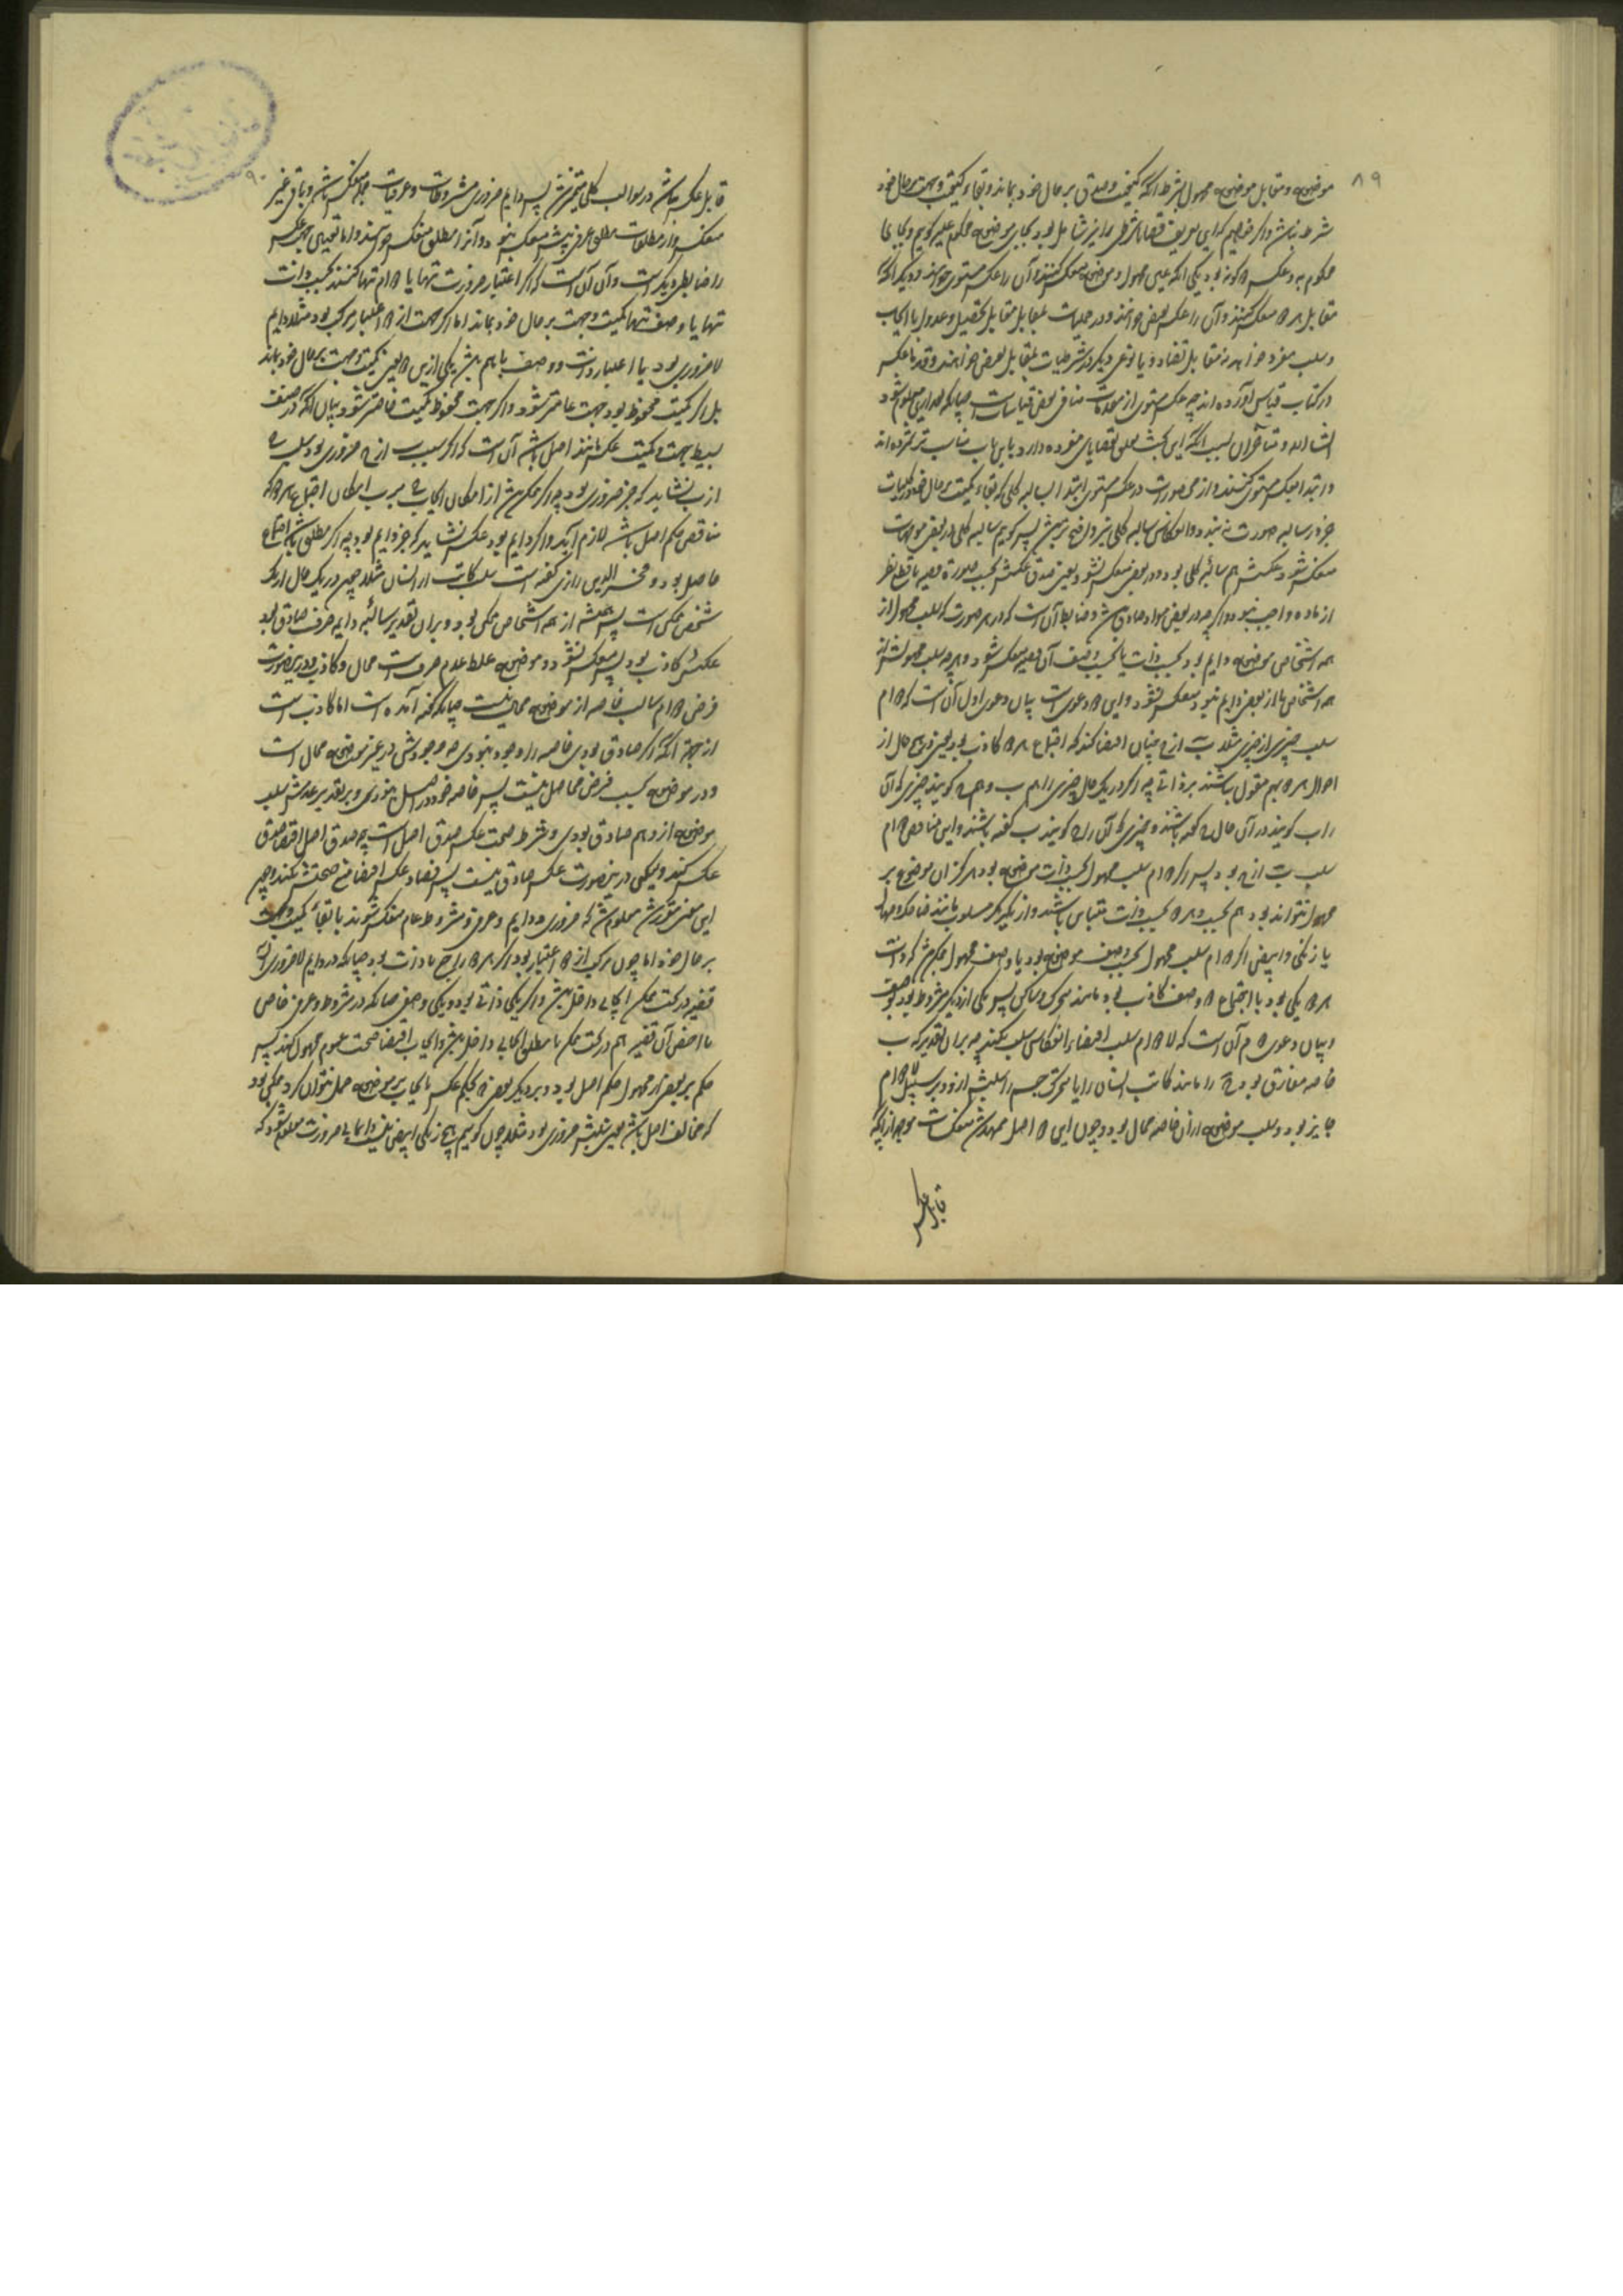 ۸۹
موضوع و مقابل موضوع محمول بشرط آنکه کیفیت و صدق بر حال خود بماند و بقاء کمیت و جهت بر حال خود
شرط نباشد و اگر خواهیم که این تعریف قضایاء شرطی را نیز شامل بود بجای موضوع محکوم علیه گوییم و بجای محمول
محکوم به و عکس دو گونه بود یکی آنکه عین محمول و موضوع منعکس کنند و آن را عکس مستوی خوانند و دیگر آنکه
مقابل هر دو منعکس کنند و آن را عکس نقیض خوانند و در حملیات بمقابل مقابل تحصیل و عدول یا ایجاب
و سلب مفرد خواهند نه مقابل تضاد و یا نوعی دیگر و در شرطیات بمقابل نقیض خواهند و قدما عکس
در کتاب قیاس آورده‌اند چه عکس مستوی از مقدمات منافی بعضی قیاسات است چنانکه بعد ازین معلوم شود
انشاءالله و متأخران بسبب آنکه این بحث تعلق بقضایای مفرده دارد باین باب مناسب‌تر شمرده‌اند
و ابتدا بعکس مستوی کنند و از محصورات در عکس مستوی ابتدا بسالبه کلی که بقاء کمیت بر حال خود در کلیات
جز در سالبه صورت نبندد و انعکاس سالبه کلی نیز واضح‌تر باشد پس گوییم سالبه کلی در بعضی موجهات
منعکس شود و عکسش هم سالبه کلی بود و در بعضی منعکس نشود یعنی صدق عکسش بحسب صورت قضیه با قطع نظر
از ماده واجب نبود و اگر چه در بعضی مواد صادق باشد و ضابط آن است که در هر صورت که سلب محمول از
همه اشخاص موضوع دایم بود بحسب ذات یا بحسب وصف آن قضیه منعکس شود و هر چه سلب محمولش از
همه اشخاص یا از بعضی دایم نبود منعکس نشود و این دو دعوی است بیان دعوی اول آن است که دوام
سلب چیزی از چیزی مثلا ب از ج چنان اقتضا کند که اجتماع هر دو کاذب بود یعنی در هیچ حال از
احوال هر دو بهم مقول نباشند بر ذاتی چه اگر در یک حال چیزی را هم ب و هم ج گویند چیزی که آن
را ب گویند در آن حال ج گفته باشند و چیزی که آن را ج گویند ب گفته باشند و این مناقض دوام
سلب ب از ج بود پس اگر دوام سلب محمول بحسب ذات موضوع بود هرگز آن موضوع بر
محمول نتواند بود هم بحسب و هر دو بحسب ذات متباین باشند و از یکدیگر مسلوب مانند ضاحک و صهال
یا زنگی و ابیض و اگر دوام سلب محمول بحسب وصف موضوع بود یا وصف محمول ممکن باشد که ذات
هر دو یکی بود یا اجتماع دو وصف کاذب بود مانند متحرک و ساکن پس یکی از دیگر مشروط بود بوصف
و بیان دعوی دوم آن است که لا دوام سلب اقتضاء انعکاس سلب نکند چه بر آن تقدیر که ب
خاصه مفارق بود ج را مانند کاتب انسان را یا متحرک جسم را سلبش از و بر سبیل لا دوام
جایز بود و سلب موضوع از آن خاصه محال بود و چون این دو اصل ممهد شد منعکسات موجهات از آنچه
قابل عکس
۹۰
قابل عکس نباشد در سوالب کلی متمیز شد پس دایم ضروری مشروطات و عرفیات جمله منعکس باشند و باقی غیر
منعکس و از مطلقات مطلق عرفی نیز منعکس نبود و آنرا مطلق منعکس خوانند و اما تعیین جهت عکس
را ضابطی دیگر است و آن آن است که اگر اعتبار ضرورت تنها یا دوام تنها کنند بحسب ذات
تنها یا وصف تنها کمیت و جهت بر حال خود بماند اما اگر جهت از دو اعتبار مرکب بود مثلا دایم
لا ضروری بود یا اعتبار ذات و وصف با هم باشد یکی ازین دو یعنی کمیت و جهت بر حال خود نماند
بل اگر کمیت محفوظ بود جهت عامتر شود و اگر جهت محفوظ کمیت خاصتر شود بیان آنکه در صنف
بسیط جهت و کمیت عکس مانند اصل باشد آن است که اگر سلب ب از ج ضروری بود سلب ج
از ب نشاید که جز ضروری بود چه اگر ممکن باشد از امکان ایجاب ج بر ب امکان اجتماع هر دو که
مناقض حکم اصل باشد لازم آید و اگر دایم بود عکس نشاید که جز دایم بود چه اگر مطلق باشد اجتماع
حاصل بود و فخرالدین رازی گفته است سلب کاتب از انسان مثلا چون در یک حال از یک
شخص ممکن است پس همیشه از همه اشخاص ممکن بود و بر آن تقدیر سالبه دایمه صرف صادق بود
عکسش کاذب بود پس منعکس نشود و موضع غلط عدم صرف است محال و کاذب و درین صورت
فرض دوام سالب خاصه از موضوع محال نیست چنانکه گفته آمده است اما کاذب است
از جهت آنکه اگر صادق بودی خاصه را وجود نبودی چه وجودش در غیر موضوع محال است
و در موضوع بسبب فرض حاصل نیست پس خاصه خود در اصل نبودی و بر تقدیر عدمش سلب
موضوع از و هم صادق بودی و شرط صحت عکس صدق اصل است چه صدق اصل اقتضاء صدق
عکس کند و لیکن درین صورت عکس صادق نیست پس فساد عکس اقتضا منع صحتش نکند و چون
این معنی مقرر شد معلوم شد که ضروری و دایم و عرفی و مشروط عام منعکس شوند با بقاء کمیت و جهت
بر حال خود اما چون مرکب از دو اعتبار بود اگر هر دو راجع با ذات بود چنانکه در دایم لا ضروری آن
قضیه در تحت ممکن ایجابی داخل باشد و اگر یکی ذاتی بود و یکی وصفی چنانکه در مشروط و عرفی خاص
یا اخص آن قضیه هم در تحت ممکن یا مطلق ایجابی داخل باشد و ایجاب اقتضا صحت عموم محمول کند پس
حکم بر بعضی از محمول حکم اصل بود و بر دیگر بعضی که بحکم عکس ایجاب بر موضوع حمل نتوان کرد ممکن بود
که مخالف اصل باشد یعنی سلبش ضروری بود مثلا چون گوییم هیچ زنگی ابیض نیست دایما بی ضرورت معلوم شود که